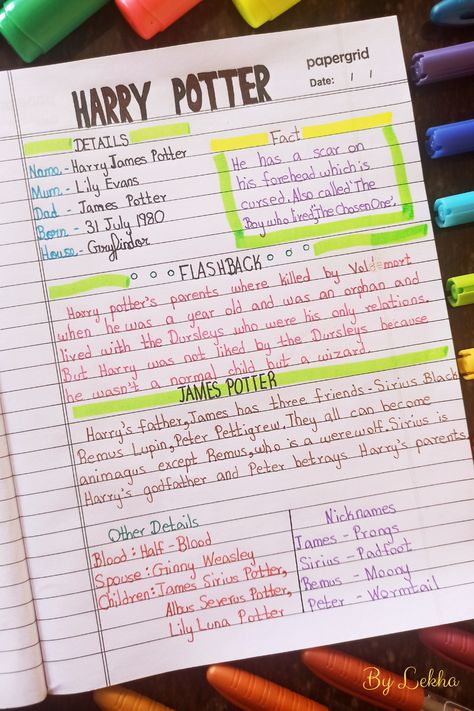 papergrid
Date: / /
HARRY POTTER
DETAILS
Name - Harry James Potter
Mum - Lily Evans
Dad - James Potter
Born - 31 July 1980
House - Gryffindor
Fact
He has a scar on
his forehead which is
cursed. Also called 'The
Boy who lived,'The Chosen One'.
FLASHBACK
Harry potter's parents where killed by Voldemort
when he was a year old and was an orphan and
lived with the Dursleys who were his only relations.
But Harry was not liked by the Dursleys because
he wasn't a normal child but a wizard.
JAMES POTTER
Harry's father, James has three friends - Sirius Black
Remus Lupin, Peter Pettigrew. They all can become
animagus except Remus, who is a werewolf. Sirius is
Harry's godfather and Peter betrays Harry's parents
Other Details
Blood : Half - Blood
Spouse : Ginny Weasley
Children : James Sirius Potter,
Albus Severus Potter,
Lily Luna Potter
Nicknames
James - Prongs
Sirius - Padfoot
Remus - Moony
Peter - Wormtail
By Lekha